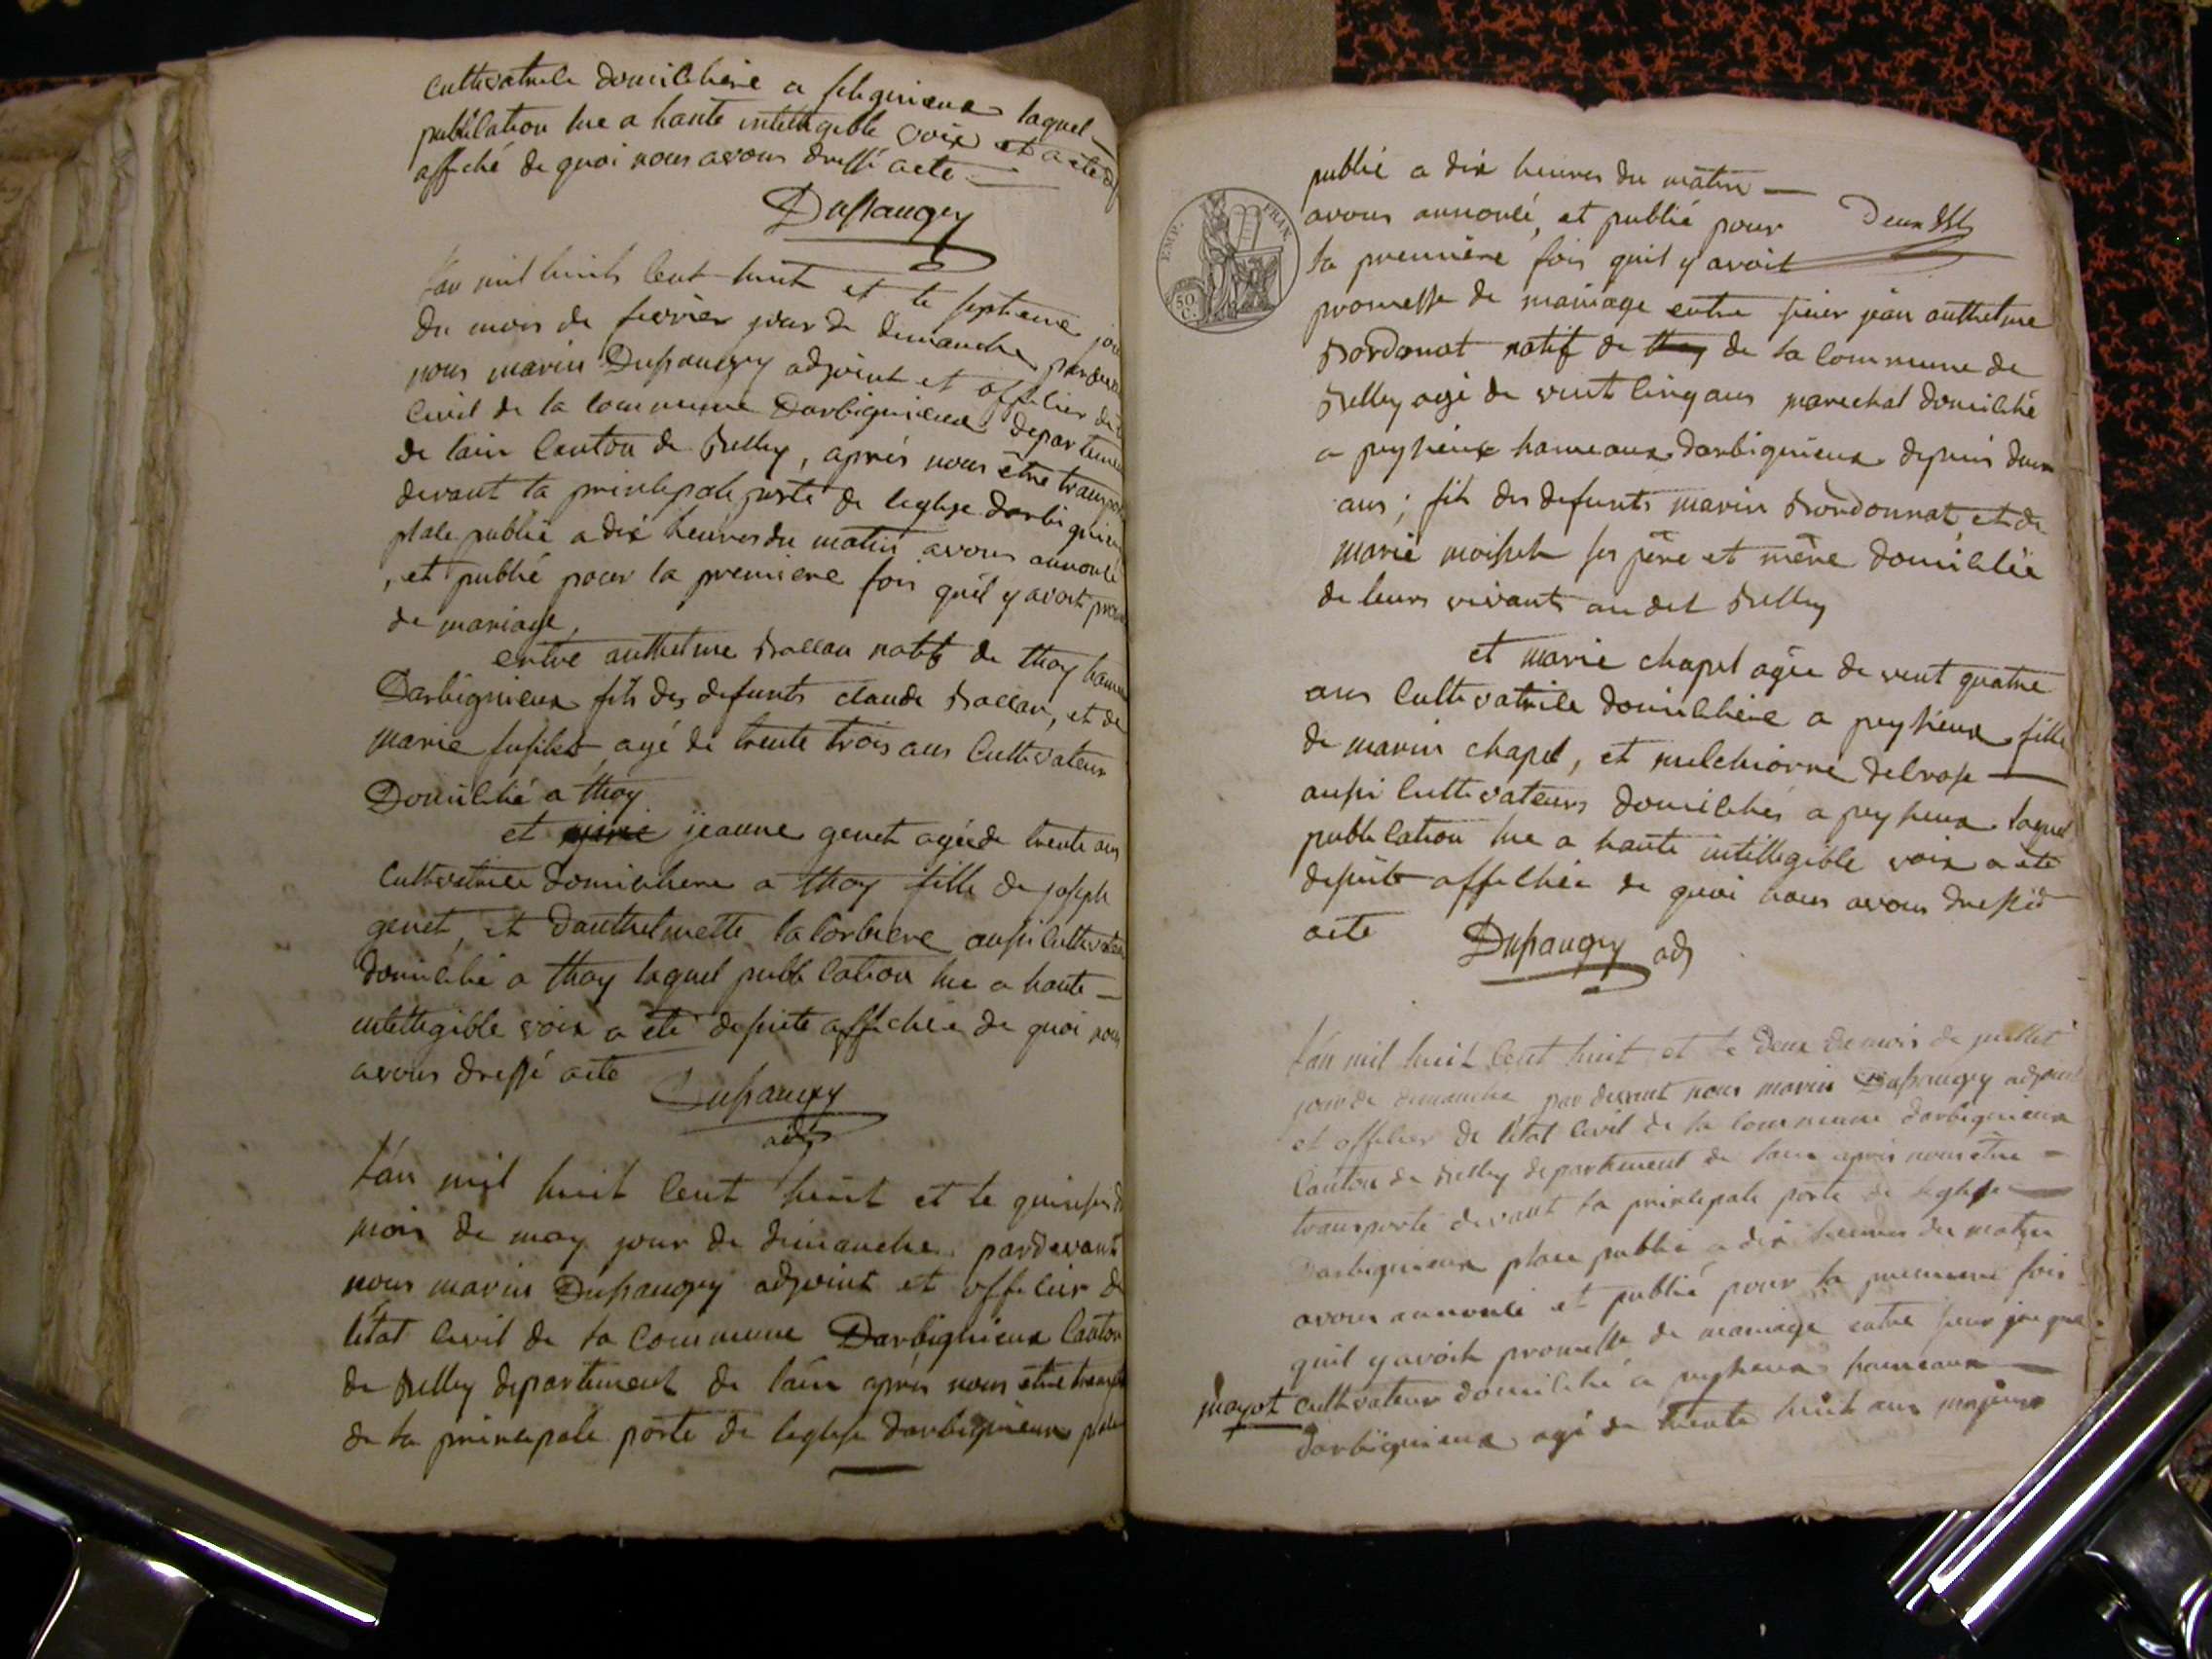 cultivatrice domiciliére a selignieux laquel
publication lue a haute intelligible voix et a eté
affiché de quoi nous avons dressé acte
Dussaugey
l'an mil huit cent huit et le septieme jour
du mois de fevrier jour de dimanche pardevant
nous marin Dussaugey adjoint et officier de
civil de la commune Darbignieux departement
de lain canton de Belley, aprés nous etre transporté
devant la principale porte de leglise darbignieux
place public a dix heures du matin avons annoncé
, et publié pour la premiere fois qu'il y avoit
de mariage,
entre anthelme Ballan natif de thoy hameau
Darbignieux fils des defunts claude Ballan, et de
marie agé de trente trois ans cultivateur
Domicilié a thoy
et jeanne genet agée de trente ans
cultivatrice domiciliere a thoy fille de joseph
genet, et danthelmette lacorbiere aussi cultivateurs
domicilié a thoy laquel publication lue a haute
intelligible voix a eté desuite affichée de quoi nous
avons dressé acte
Dussaugey
adj
l'an mil huit cent huit et le quinse du
mois de may jour de dimanche pardevant
nous marin Dussaugey adjoint et officier de
l'état civil de la commune Darbignieux canton
de Belley departement de l'ain aprés nous être
de la principale porte de leglise darbignieux place
publié a dix heures du matin
avons annoncé, et publié pour
la premiére fois quil y avoit
EMP. FRAN.
50 C.
promesse de mariage entre sieur jean anthelme
Bordonat natif de thoy de la commune de
Belley agé de vint cinq ans marechal domicilié
a peysieux hameaux darbignieux depuis deux
ans ; fils des defunts marin Bordonnat et de
marie ses pére et mére domicilié
de leurs vivants au dit Belley
et marie chapel agée de vint quatre
ans cultivatrice domiciliére a peysieux fille
de marin chapel, et melchiorre
aussi cultivateurs domiciliés a peysieux laquel
publication lue a haute intelligible voix a eté
desuite affichée de quoi nous avons dressé
acte Dussaugey adj
l'an mil huit cent huit et le deux de mois de juillet
jour de dimanche par devant nous marin Dussaugey adjoint
et officier de l'état civil de la commune darbignieux
canton de Belley departement de lain aprés nous etre
transporté devant la principale porte de leglise
Darbignieux place public a dix heures du matin
avons annoncé et publié pour la premiere fois
quil y avoit promesse de mariage entre sieur jacque
mayot cultivateur domicilié a peysieux hameaux
darbignieux agé de trente huit ans majeur